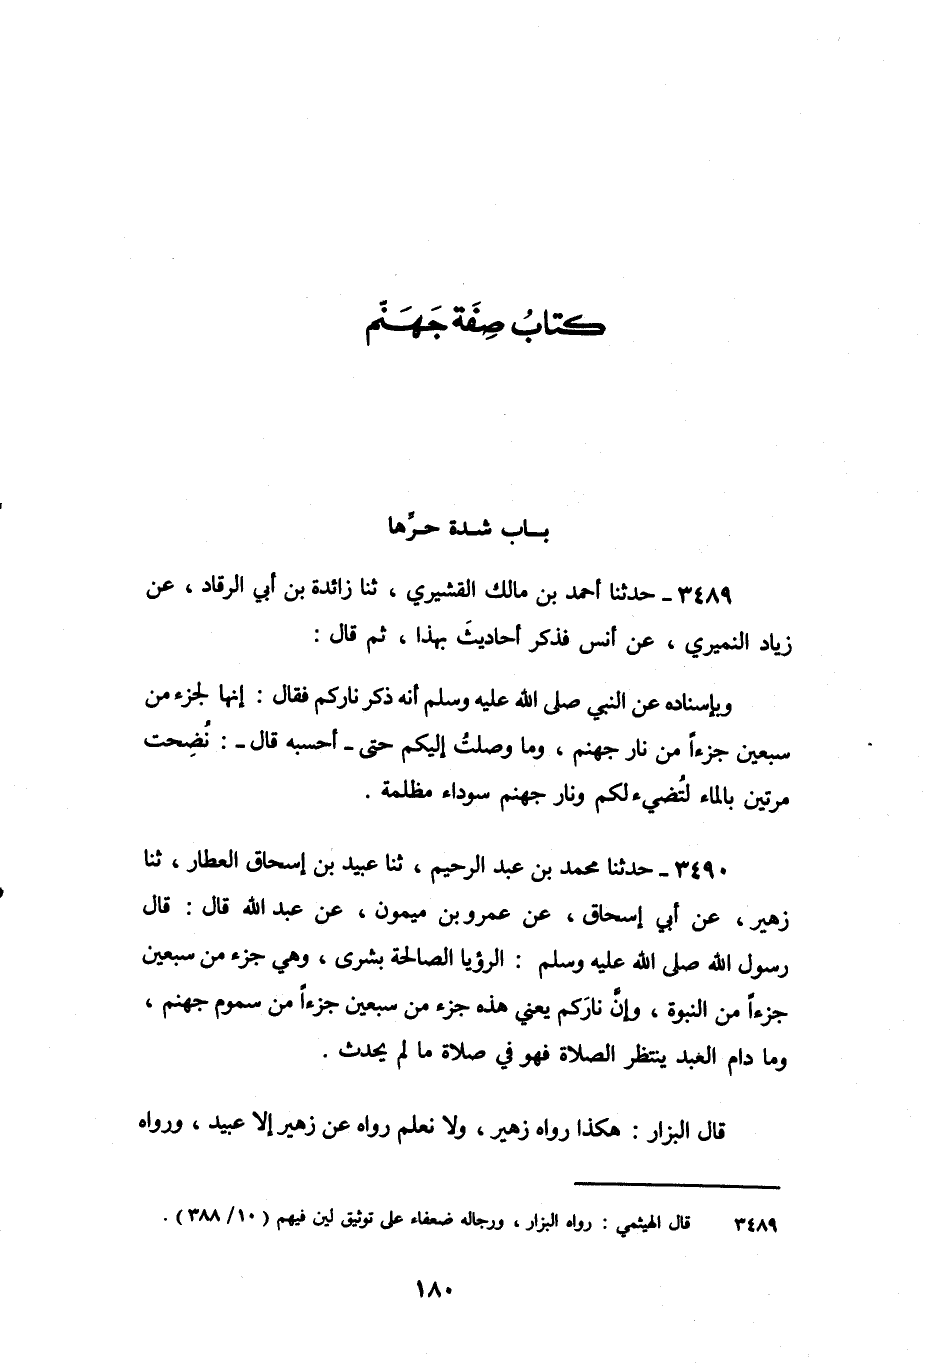 كتابُ صِفَة جَهَنَّم
بـاب شدة حـرِّها
٣٤٨٩ ـ حدثنا أحمد بن مالك القشيري ، ثنا زائدة بن أبي الرقاد ، عن
زياد النميري ، عن أنس فذكر أحاديثَ بهذا ، ثم قال :
وبإسناده عن النبي صلى الله عليه وسلم أنه ذكر ناركم فقال : إنها لجزء من
سبعين جزءاً من نار جهنم ، وما وصلتُ إليكم حتى ـ أحسبه قال ـ : نُضِحت
مرتين بالماء لتُضيء لكم ونار جهنم سوداء مظلمة .
٣٤٩٠ ـ حدثنا محمد بن عبد الرحيم ، ثنا عبيد بن إسحاق العطار ، ثنا
زهير ، عن أبي إسحاق ، عن عمرو بن ميمون ، عن عبد الله قال : قال
رسول الله صلى الله عليه وسلم : الرؤيا الصالحة بشرى ، وهي جزء من سبعين
جزءاً من النبوة ، وإنَّ نارَكم يعني هذه جزء من سبعين جزءاً من سموم جهنم ،
وما دام العبد ينتظر الصلاة فهو في صلاة ما لم يحدث .
قال البزار : هكذا رواه زهير ، ولا نعلم رواه عن زهير إلا عبيد ، ورواه
٣٤٨٩ قال الهيثمي : رواه البزار ، ورجاله ضعفاء على توثيق لين فيهم ( ١٠/ ٣٨٨ ) .
١٨٠